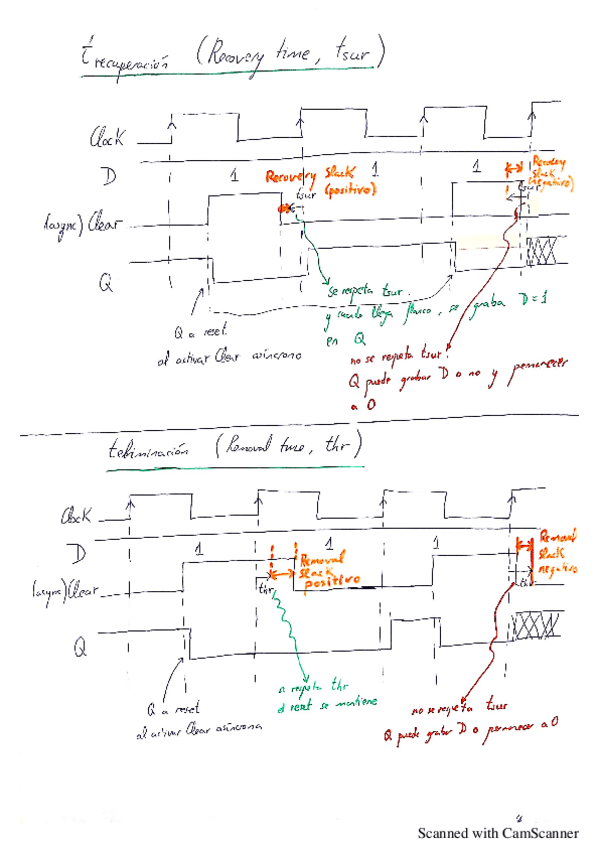 t recuperación (Recovery time, tsur)
Clock
D 1 1 1
Recovery Slack (positivo)
Recovery Slack (negativo)
tsur
tsur
(async) Clear
Q
Q a reset
al activar Clear asíncrono
se respeta tsur.
y cuando llega flanco, se graba D=1
en Q
no se respeta tsur.
Q puede grabar D o no y permanecer
a 0
t eliminación (Removal time, thr)
Clock
D 1 1 1
Removal slack positivo
Removal slack negativo
(async) Clear
thr
Q
Q a reset
al activar Clear asíncrono
se respeta thr
el reset se mantiene
no se respeta tsur
Q puede grabar D o permanecer a 0
Scanned with CamScanner